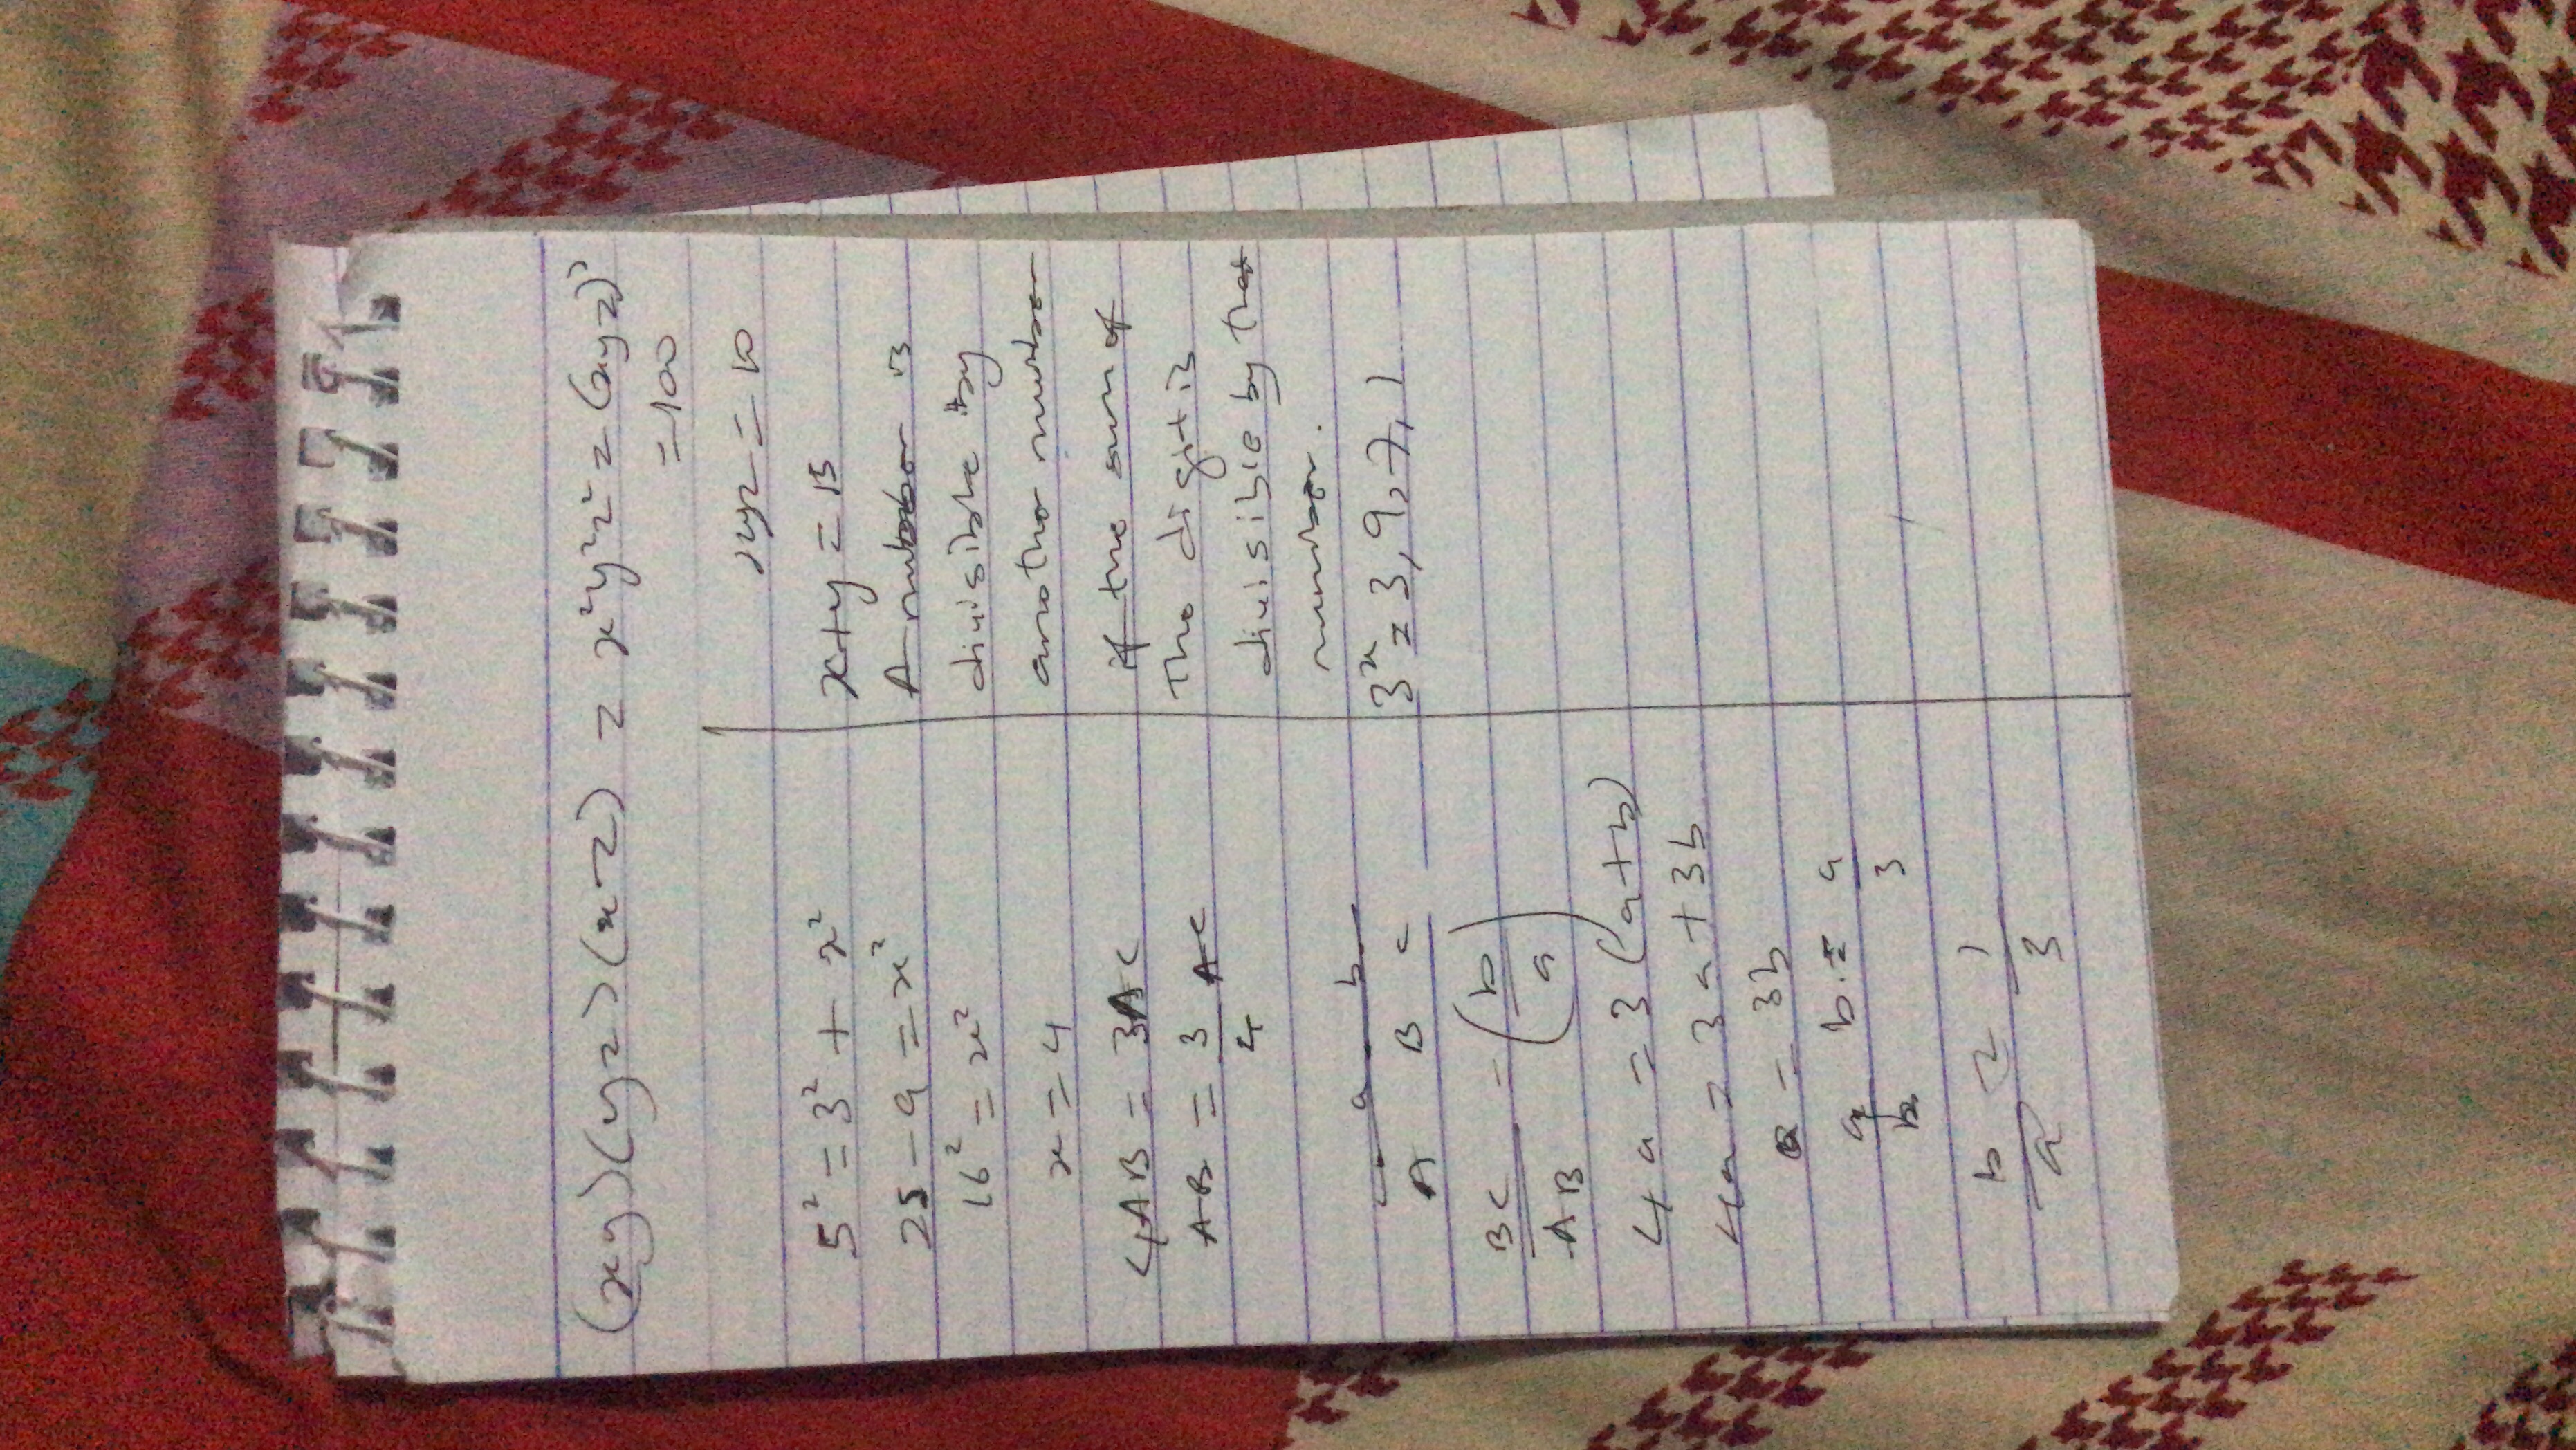 (xy)(yz)(xz) = x²y²z² = (xyz)²
=100
xyz = 10
5² = 3² + x²
25 - 9 = x²
16² = x²
x = 4
4AB = 3AC
AB = 3/4 AC
a b
A B C
BC/AB = (b/a)
4a = 3(a+b)
4a = 3a + 3b
a = 3b
a/b b = a/3
b/a = 1/3
x+y = 15
A number is
divisible by
another number
if the sum of
the digit is
divisible by that
number.
3ˣ = 3, 9, 7, 1